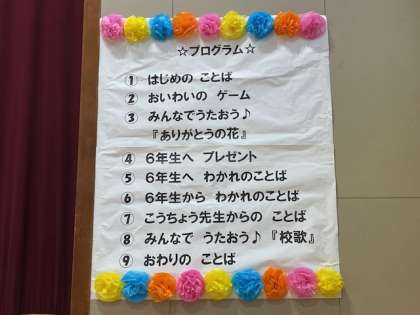 ☆プログラム☆
① はじめの ことば
② おいわいの ゲーム
③ みんなでうたおう♪
『ありがとうの花』
④ 6年生へ プレゼント
⑤ 6年生へ わかれのことば
⑥ 6年生から わかれのことば
⑦ こうちょう先生からの ことば
⑧ みんなで うたおう♪『校歌』
⑨ おわりの ことば